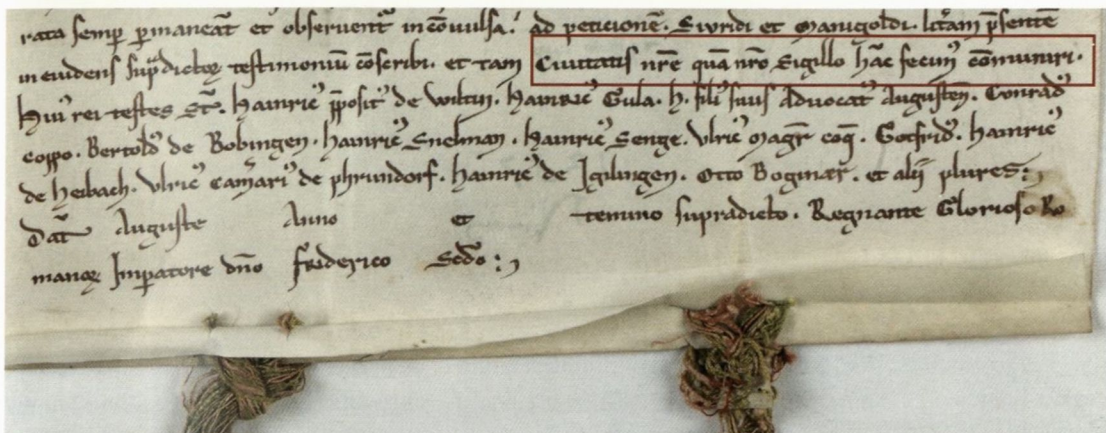 rata semp pmaneāt et observent̄ in cōvulsa. ad peticionē. Sivridi et Manigoldi. litt̄am p̄sentē
in evidens sup̄dictoꝝ testimoniū cōscribi. et tam Civitatis nr̄e quā nr̄o Sigillo hāc fecim᷒ cōmuniri.
Hui᷒ rei testes st̄. Hainric᷒ p̄posit᷒ de wiltin. Hainric᷒ Gula. h. fili᷒ suus Advocat᷒ Augusten̄. Conrad᷒
coppo. Bertold᷒ de Bobingen. hainric᷒ Snelman. hainric᷒ Senge. Vlric᷒ Magr̄ coq̄. Gotfrid᷒. hainric᷒
de heibach. Vlric᷒ Cam̄ari᷒ de phrundorf. hainric᷒ de Igilingen. Otto Bognær. et alii plures:
Dat̄ Auguste Anno et termino supradicto. Regnante Glorioso Ro
manoꝝ Imp̄atore dn̄o friderico Scd̄o: